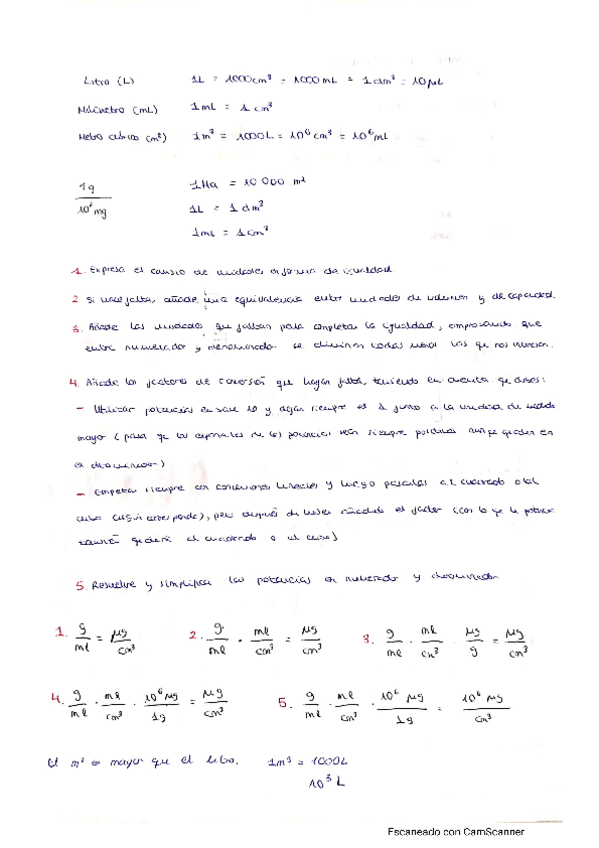 Litro (L) 1L = 1000cm³ = 1000mL = 1dm³ = 10μL
Mililitro (mL) 1mL = 1cm³
Metro cúbico (m³) 1m³ = 1000L = 10⁶cm³ = 10⁶mL
1Ha = 10 000 m²
1g / 10⁶ mg 1L = 1dm³
1mL = 1cm³
1. Expresa el cambio de unidades en forma de igualdad.
2. Si hace falta, añade una equivalencia entre unidades de volumen y de capacidad.
3. Añade las unidades que faltan para completar la igualdad, comprobando que
entre numerador y denominador se eliminan todas menos las que nos interesan.
4. Añade los factores de conversión que hagan falta, teniendo en cuenta que debes:
- Utilizar potencias en base 10 y dejar siempre el 1 junto a la unidad de medida
mayor (para que los exponentes de las potencias sean siempre positivos aunque queden en
el denominador)
- Empezar siempre con conversiones lineales y luego pasarlas al cuadrado o al
cubo (según corresponda), pero después de haber añadido el factor (con lo que la potencia
también quedará al cuadrado o al cubo)
5. Resuelve y simplifica las potencias en numerador y denominador
1. g/ml = μg/cm³ 2. g/ml · ml/cm³ = μg/cm³ 3. g/ml · ml/cm³ · μg/g = μg/cm³
4. g/ml · ml/cm³ · 10⁶ μg/1g = μg/cm³ 5. g/ml · ml/cm³ · 10⁶ μg/1g = 10⁶ μg/cm³
El m³ es mayor que el litro. 1m³ = 1000L
10³ L
Escaneado con CamScanner